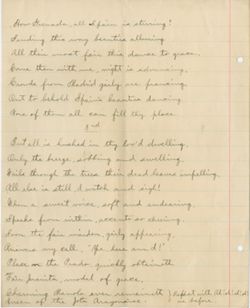 Now Grenada, all Spain is stirring!
Sending this way beauties alluring
All this most fair this dance to grace.
Come then with me, night is advancing,
Crowds from Madrid gaily are prancing
Out to behold Spain's beauties dancing
One of them all can fill thy place.
2nd
But all is hushed in thy lov'd dwelling,
Only the breeze, sobbing and swelling
Wails through the trees their dead leaves impelling,
All else is still, I watch and sigh!
When a sweet voice, soft and endearing
Speaks from within, accents so cheering,
Soon the fair maiden, gaily appearing,
Answers my call, "I'm here am I!"
Place on the Prado quickly obtaineth
Fair Juanita, model of grace,
Charming Manola ever remaineth
Queen of the Jota Aragonesa.
Repeat with Ah! ah! ah!
as before.